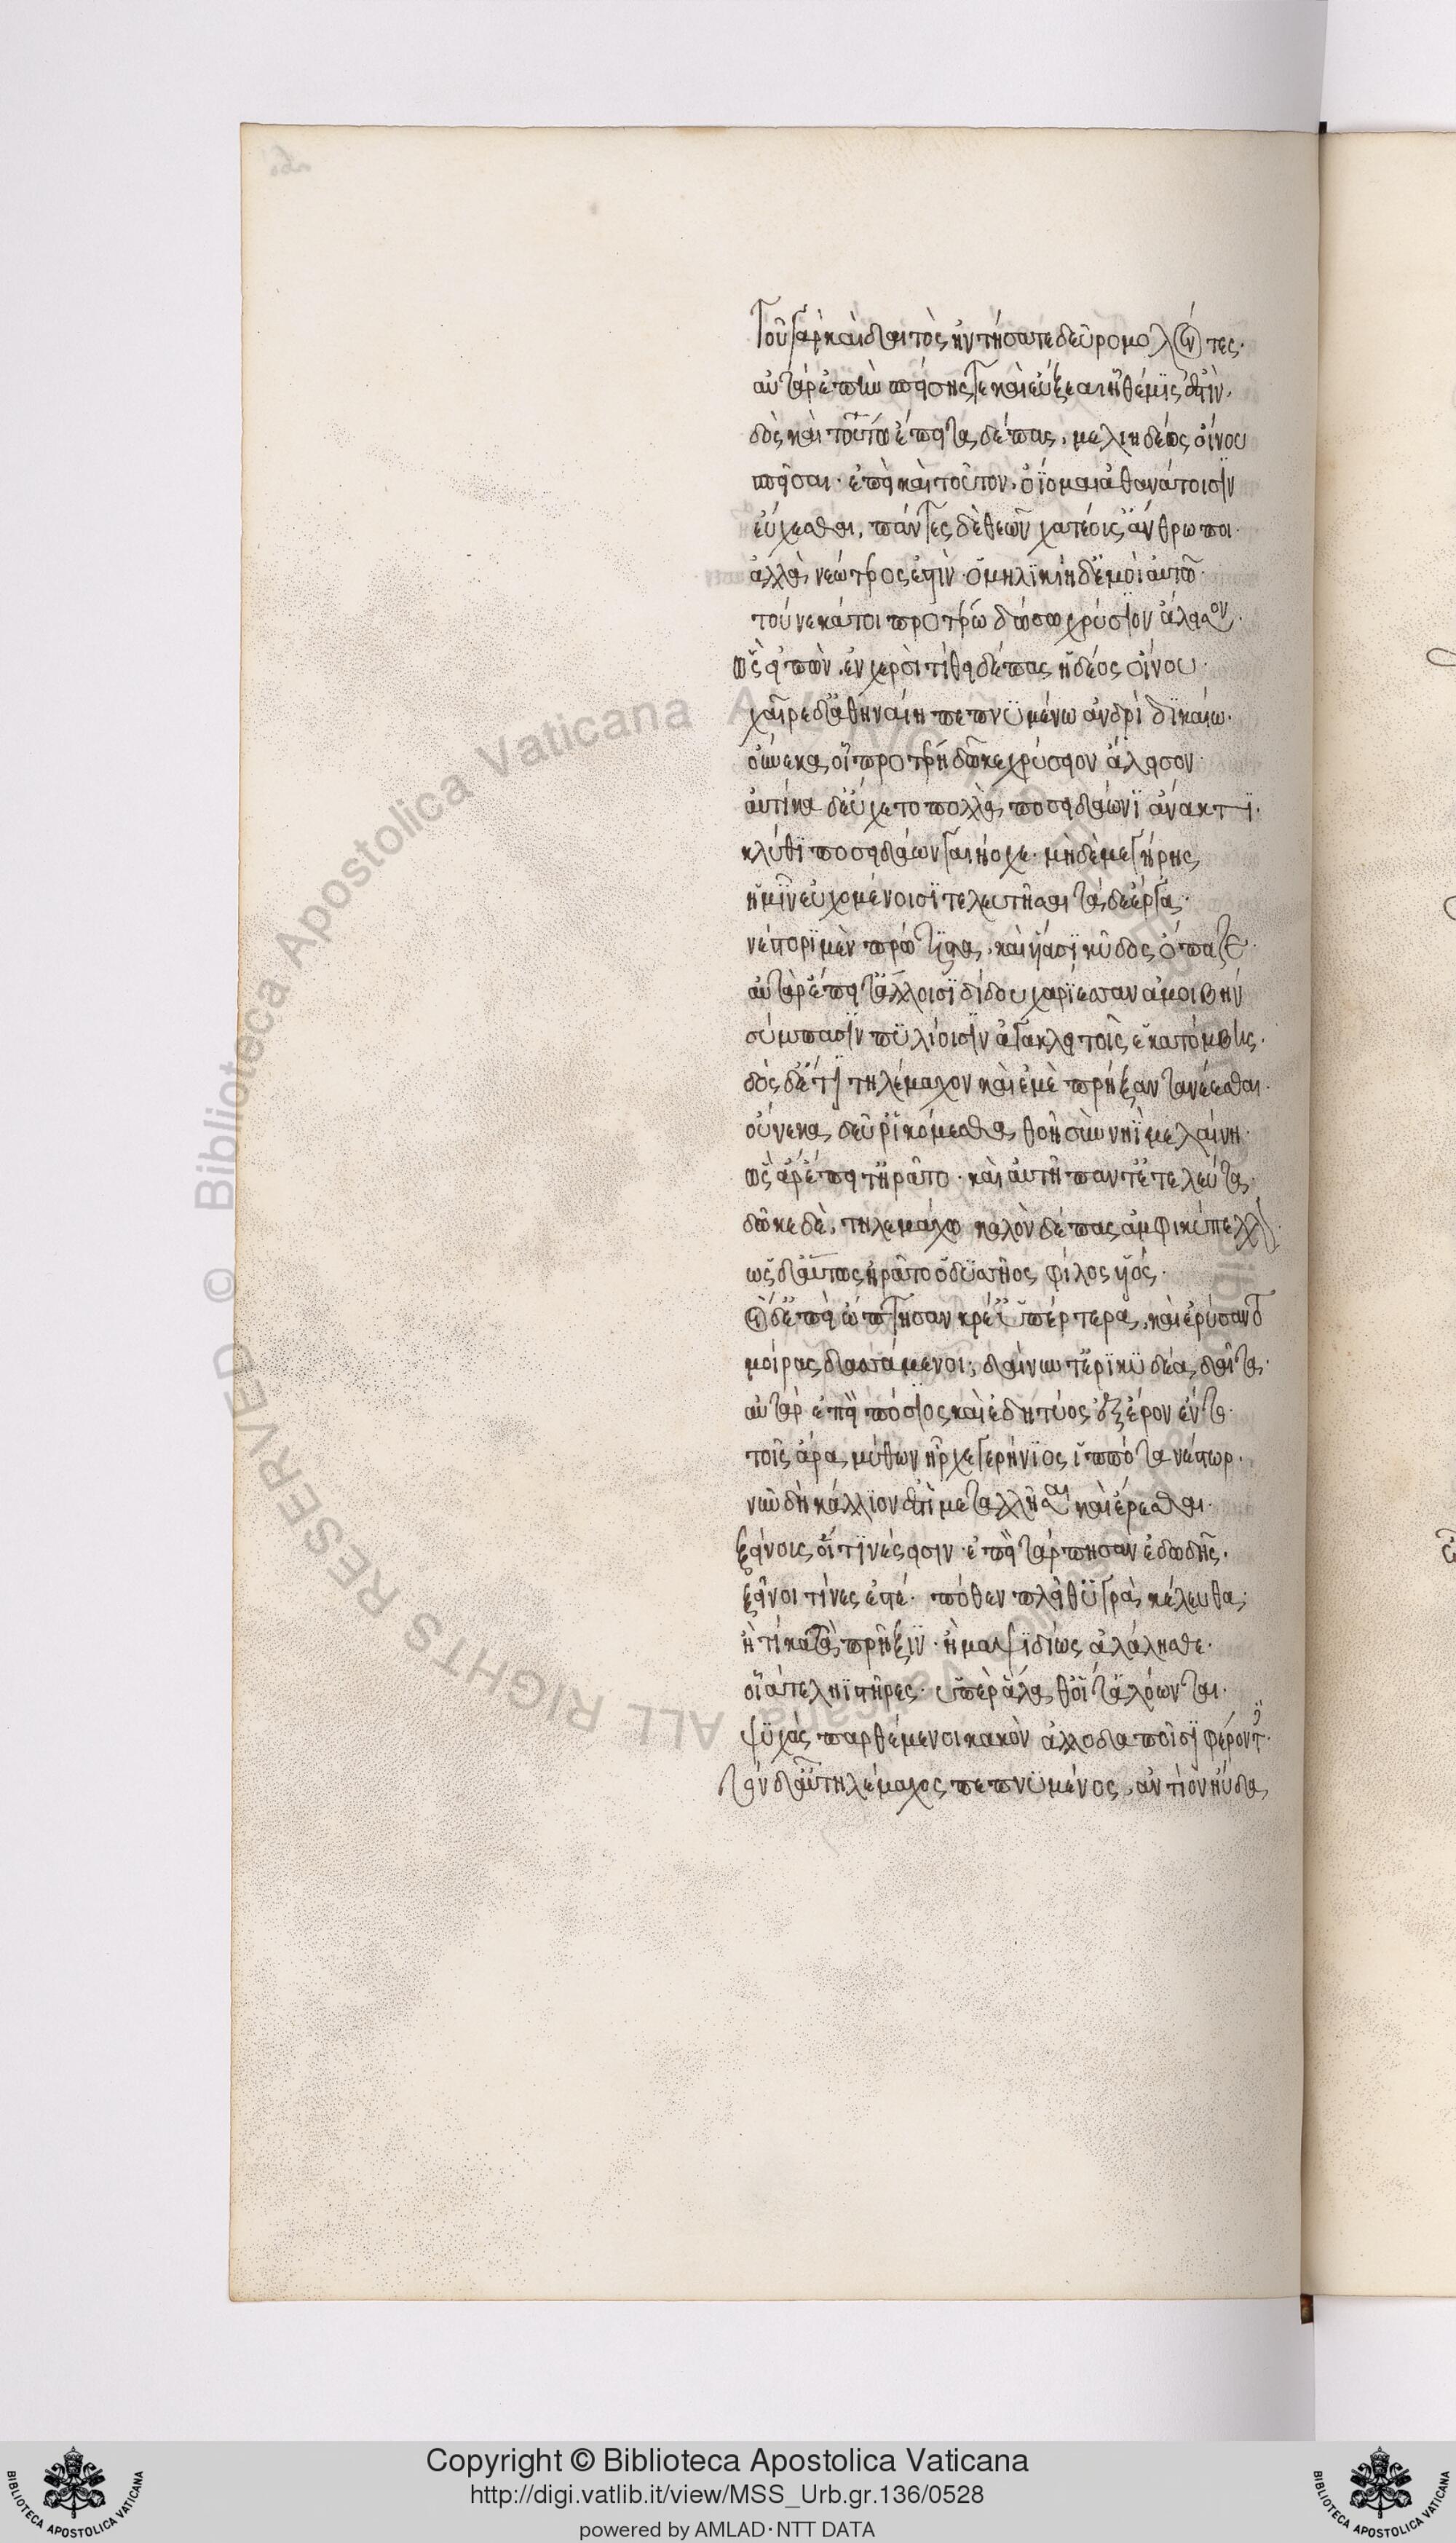 Τοῦ γὰρ καὶ δαιτὸς ἠντήσατε δεῦρο μολόντες·
αὐτὰρ ἐπὴν σπείσῃς τε καὶ εὔξεαι ἣ θέμις ἐστίν,
δὸς καὶ τούτῳ ἔπειτα δέπας μελιηδέος οἴνου
σπεῖσαι· ἐπεὶ καὶ τοῦτον ὀΐομαι ἀθανάτοισιν
εὔχεσθαι, πάντες δὲ θεῶν χατέουσ' ἄνθρωποι·
ἀλλὰ νεώτερος ἐστὶν· ὁμηλικίη δ' ἐμοὶ αὐτῷ·
τούνεκά τοι προτέρῳ δώσω χρύσειον ἄλεισον·
ὣς εἰπὼν ἐν χερσὶ τίθει δέπας ἡδέος οἴνου·
χαῖρε δ' ἀθηναίη πεπνυμένῳ ἀνδρὶ δικαίῳ·
οὕνεκα οἷ προτέρῃ δῶκε χρύσειον ἄλεισον·
αὐτίκα δ' εὔχετο πολλὰ ποσειδάωνι ἄνακτι·
κλῦθι ποσείδαον γαιήοχε· μηδὲ μεγήρῃς
ἡμῖν εὐχομένοισι τελευτῆσαι τάδε ἔργα·
νέστορι μὲν πρώτιστα, καὶ υἱάσι κῦδος ὄπαζε·
αὐτὰρ ἔπειτ' ἄλλοισι δίδου χαρίεσσαν ἀμοιβὴν
σύμπασιν πυλίοισιν ἀγακλειτοῖς ἑκατόμβης·
δὸς δ' ἔτι τηλέμαχον καὶ ἐμὲ πρήξαντα νέεσθαι·
οὕνεκα δεῦρ' ἱκόμεσθα θοῇ σὺν νηῒ μελαίνῃ·
ὣς ἄρ' ἔπειτ' ἠρᾶτο· καὶ αὐτὴ πάντ' ἐτελεύτα·
δῶκε δὲ τηλεμάχῳ καλὸν δέπας ἀμφικύπελλον·
ὣς δ' αὔτως ἠρᾶτο ὀδυσσῆος φίλος υἱός·
οἱ δ' ἐπεὶ ὤπτησαν κρέ' ὑπέρτερα, καὶ ἐρύσαντο
μοίρας δασσάμενοι, δαίνυντ' ἐρικυδέα δαῖτα·
αὐτὰρ ἐπεὶ πόσιος καὶ ἐδητύος ἐξ ἔρον ἕντο·
τοῖς ἄρα μύθων ἦρχε γερήνιος ἱππότα νέστωρ·
νῦν δὴ κάλλιόν ἐστι μεταλλῆσαι καὶ ἔρεσθαι·
ξείνους οἵτινές εἰσιν· ἐπεὶ τάρπησαν ἐδωδῆς·
ξεῖνοι τίνες ἐστέ· πόθεν πλεῖθ' ὑγρὰ κέλευθα;
ἤ τι κατὰ πρῆξιν· ἢ μαψιδίως ἀλάλησθε·
οἷά τε ληϊστῆρες· ὑπεὶρ ἅλα, θοί τ' ἀλόωνται·
ψυχὰς παρθέμενοι κακὸν ἀλλοδαποῖσι φέροντες·
Τὸν δ' αὖ τηλέμαχος πεπνυμένος ἀντίον ηὔδα
Copyright © Biblioteca Apostolica Vaticana
http://digi.vatlib.it/view/MSS_Urb.gr.136/0528
powered by AMLAD·NTT DATA